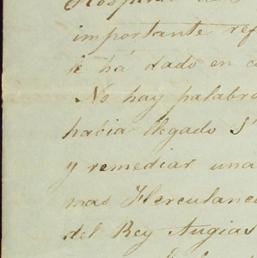 importante ref
se há dado en c
No hay palabra
hacia llegado S
y remediar una
mas Herculane
del Rey Augias